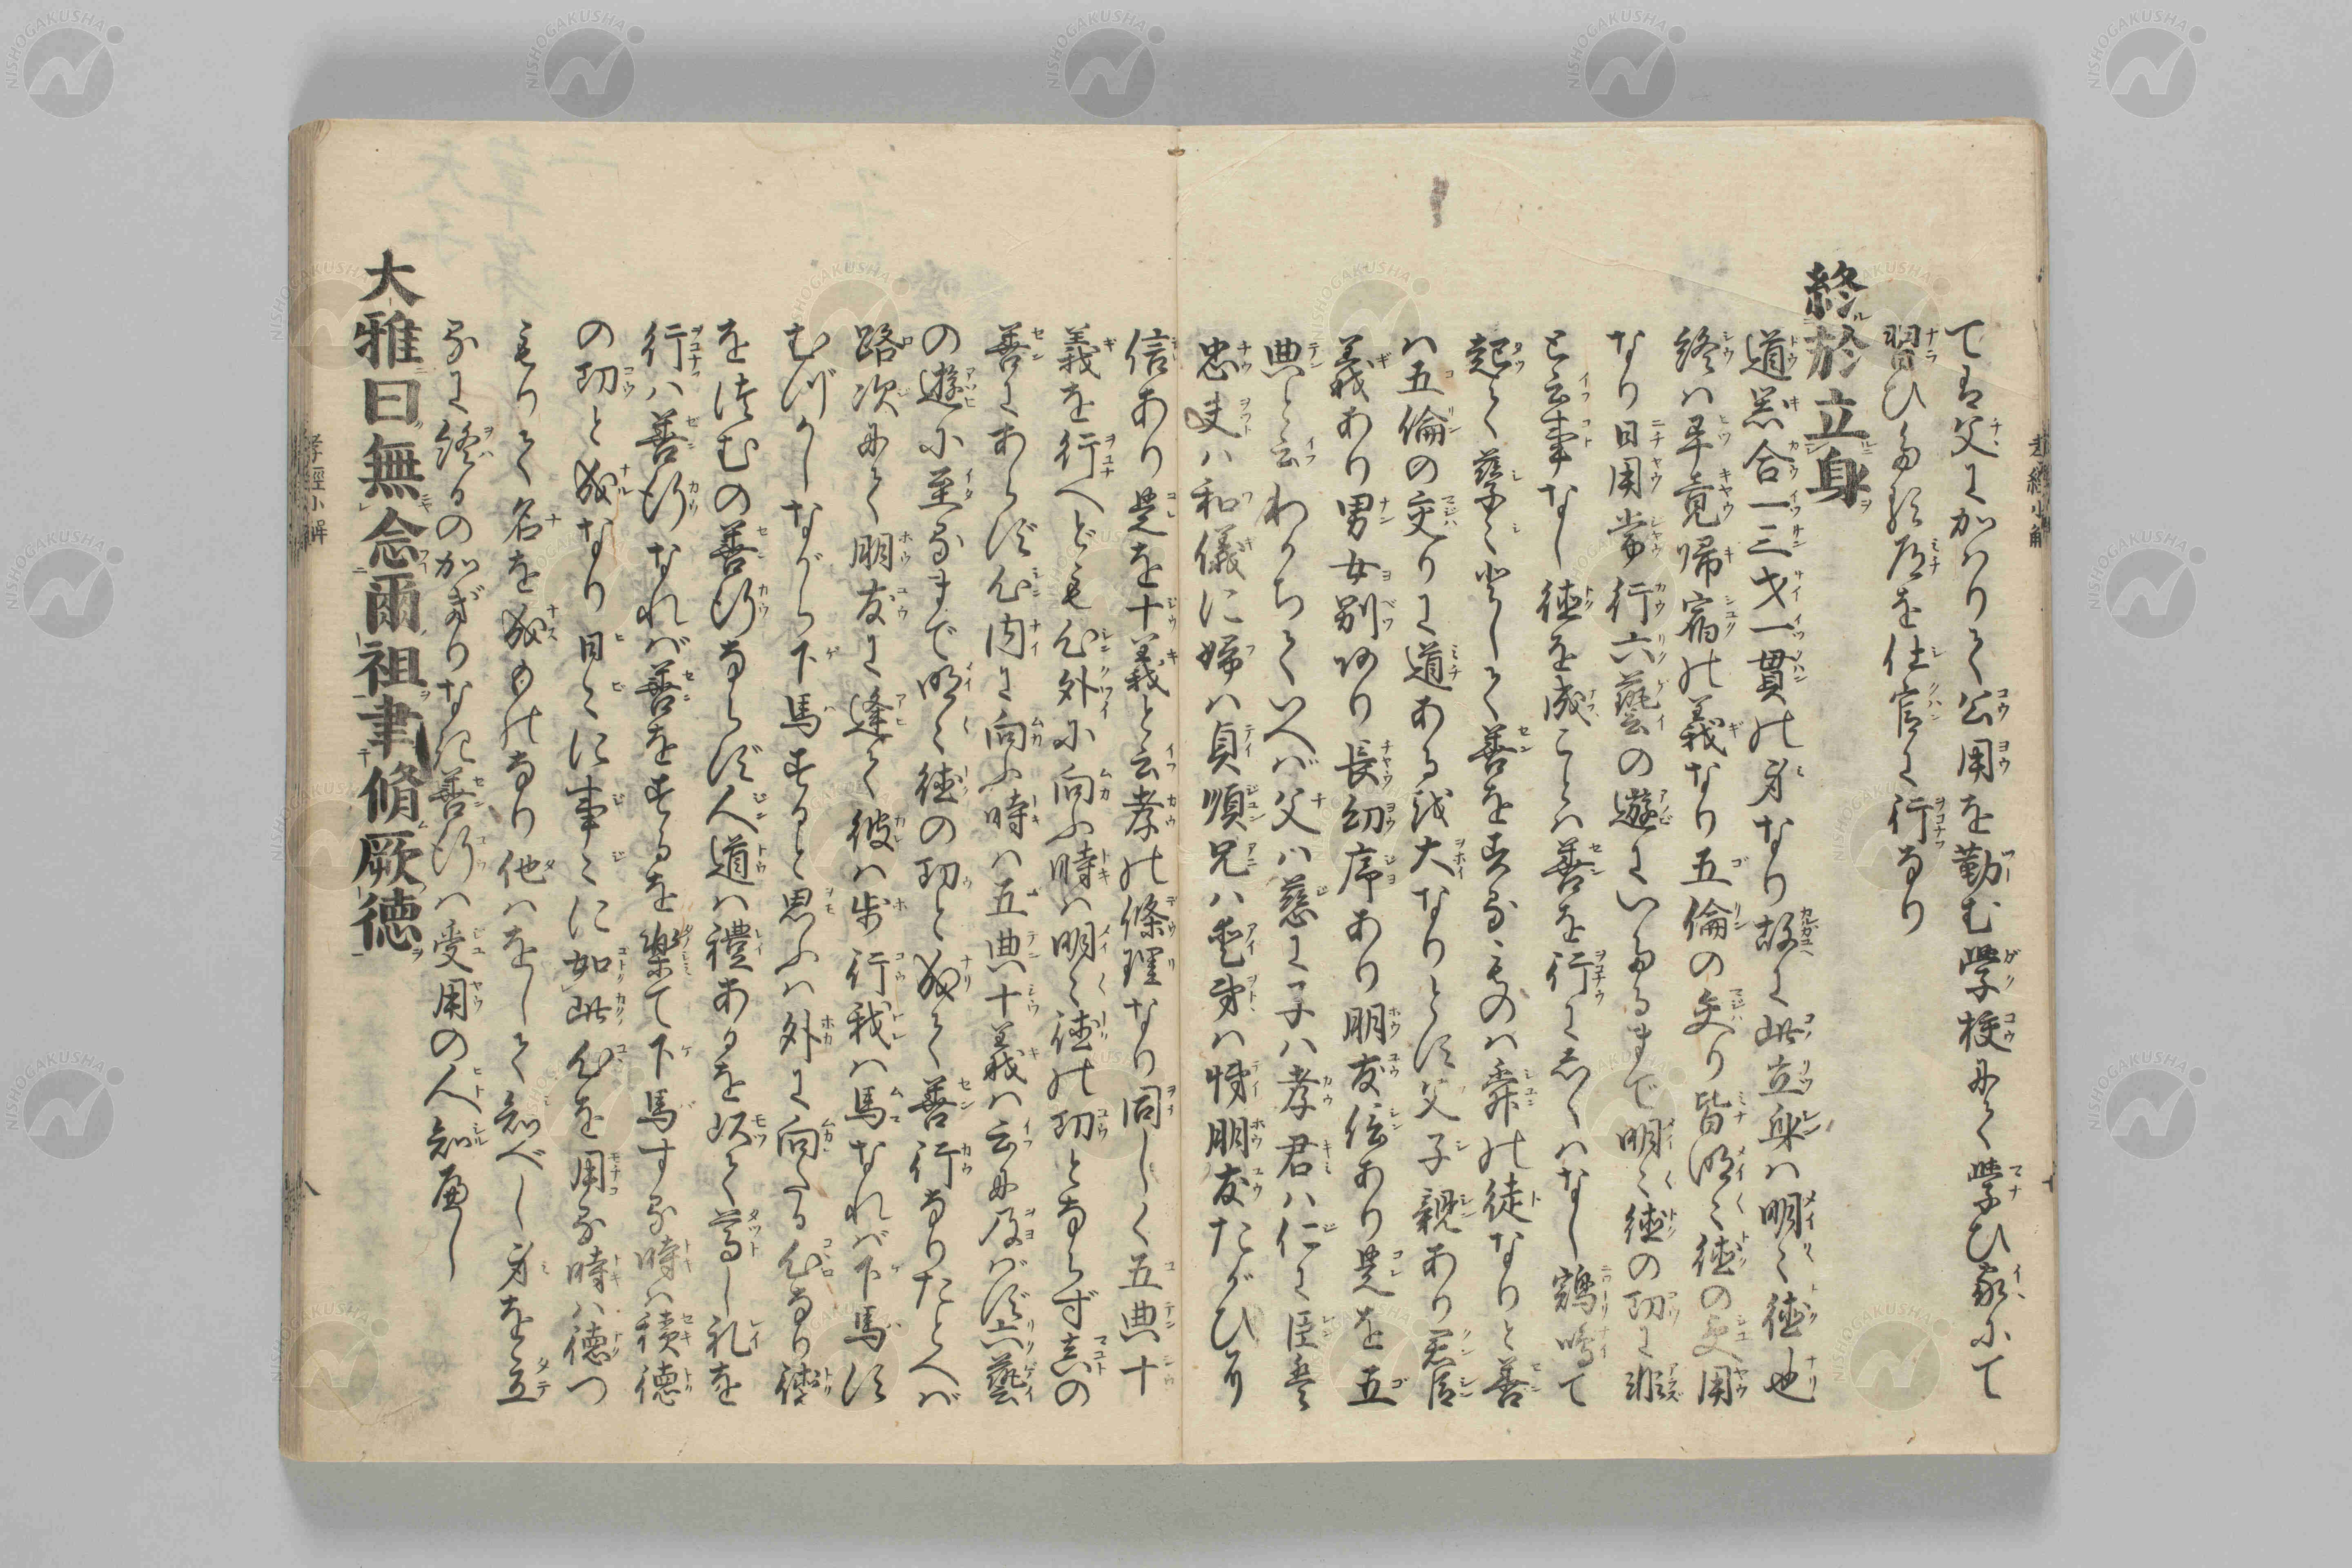 てハ父にかハりて公用を勤む学校にて学ひ家にて
習ひたる道を仕官に行なり
終於立身
道器合一三才一貫の身なり故に此立身ハ明々徳也
終ハ畢竟帰宿の義なり五倫の交り皆明々徳の受用
なり日用常行六藝の遊にいたるまで明々徳の功に非
と云事なし徳を成ことハ善を行にしくハなし鶏鳴て
起て孳々として善をする者ハ舜の徒なりと善
ハ五倫の交りに道あるを大なりとす父子親あり君臣
義あり男女別あり長幼序あり朋友信あり是を五
典と云わかちていへバ父ハ慈に子ハ孝君ハ仁に臣ハ
忠夫ハ和儀に婦ハ貞順兄ハ愛弟ハ悌朋友たがひに
信あり是を十義と云孝の條理なり同しく五典十
義を行へども心外に向ふ時ハ明々徳の功とならず真の
善にあらず心内に向ふ時ハ五典十義ハ云に及バず六藝
の遊に至るまで明々徳の功と成て善行なりたとへバ
路次にて朋友に逢て彼ハ歩行我ハ馬なれバ下馬す
むづかしながら下馬すると思ふハ外に向たる心なり徳
を積むの善行ならず人道ハ禮あるを以て尊し礼を
行ハ善行なれバ善をするを樂て下馬する時ハ積徳
の功と成なり日々に事々に如此心を用る時ハ徳つ
もりて名を成ものなり他ハをして知べし身を立
るに終るのかぎりなき善行ハ受用の人知べし
大雅曰無念爾祖聿脩厥德
孝經小解
八